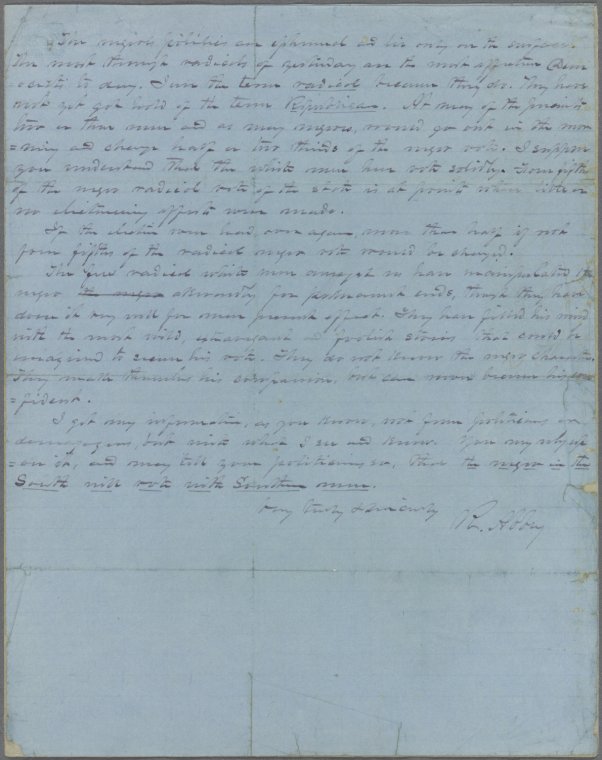 The negro's politics are ephemeral and lie only on the surface.
The most through radicals of yesterday are the most Dem
=ocrats to day. I use the term radical because they do. They have
not yet got hold of the term Republican. At many of the precincts
two or three men and as many negroes, would go out in the mor
=ning and change half or two thirds of the negro vote. I suppose
you understand that the white men here vote solidly. Four fifths
of the negro radical vote of the state is at points where little or
no electioneering efforts were made.
If the election were held over again, more than half if not
four fifths of the radical negro vote would be changed.
The few radical white men amongst us have manipulated the
negro the negro awkwardly for permanent ends, though they have
done it very well for mere present effect. They have filled his mind
with the most wild, extravagant and foolish stories that could be
imagined to secure his vote. They do not know the negro character.
They make themselves his companion, but can never become his con
=fident.
I get my information, as you know, not from politicians or
demagogues, but with what I see and know. You may rely
=on it, and may tell your politicians so, that the negro in the
South will vote with Southern men.
Very truly & sincerely
R. Abbey